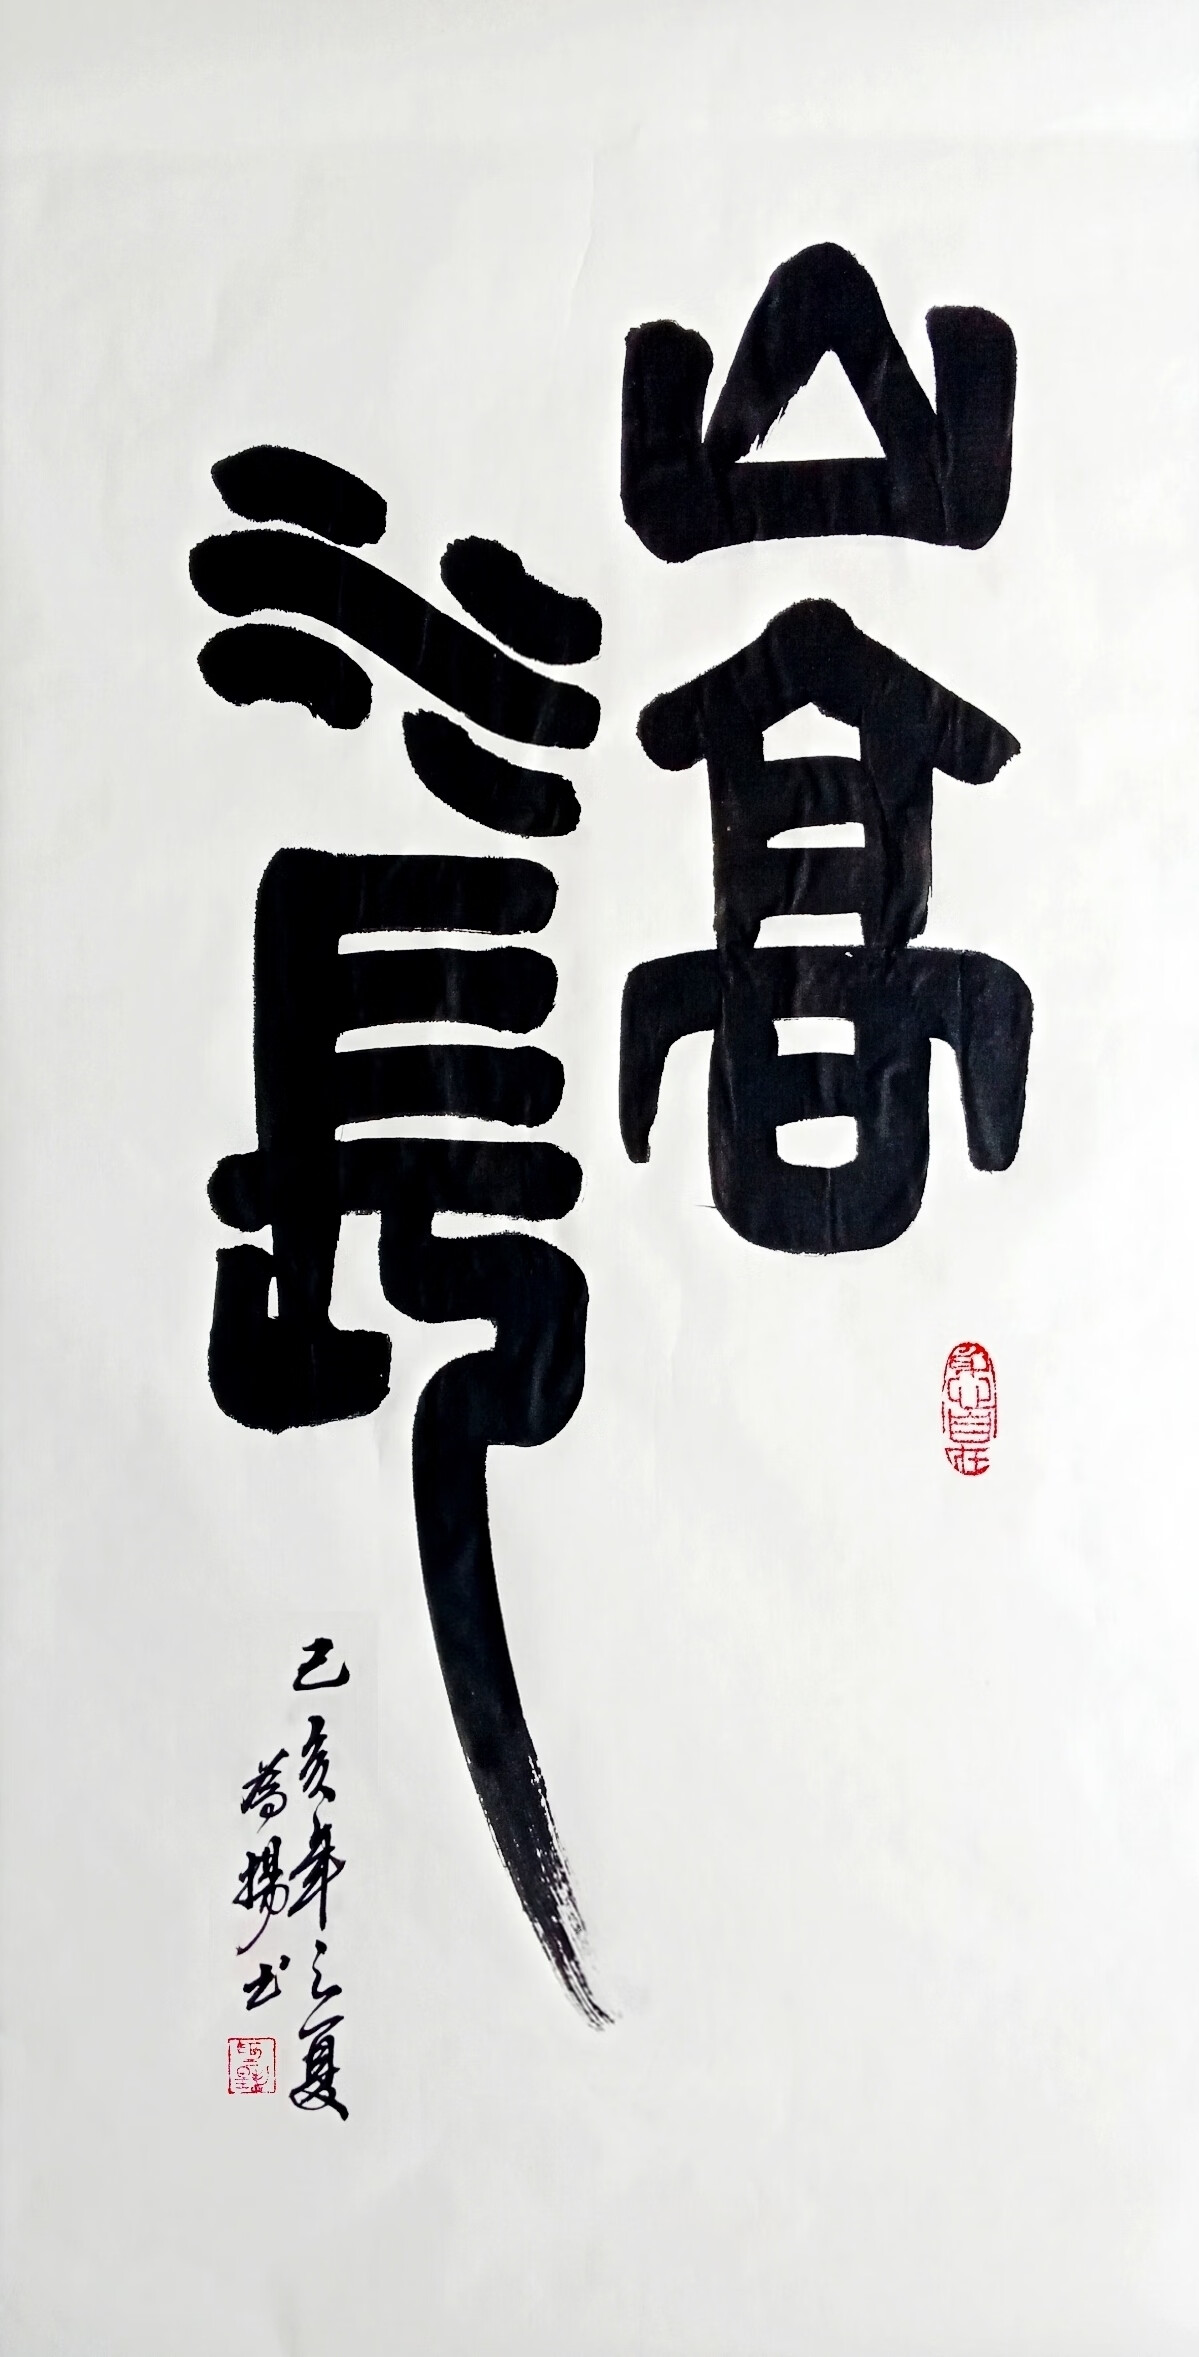 山高
水長
己亥年之夏
為揚书